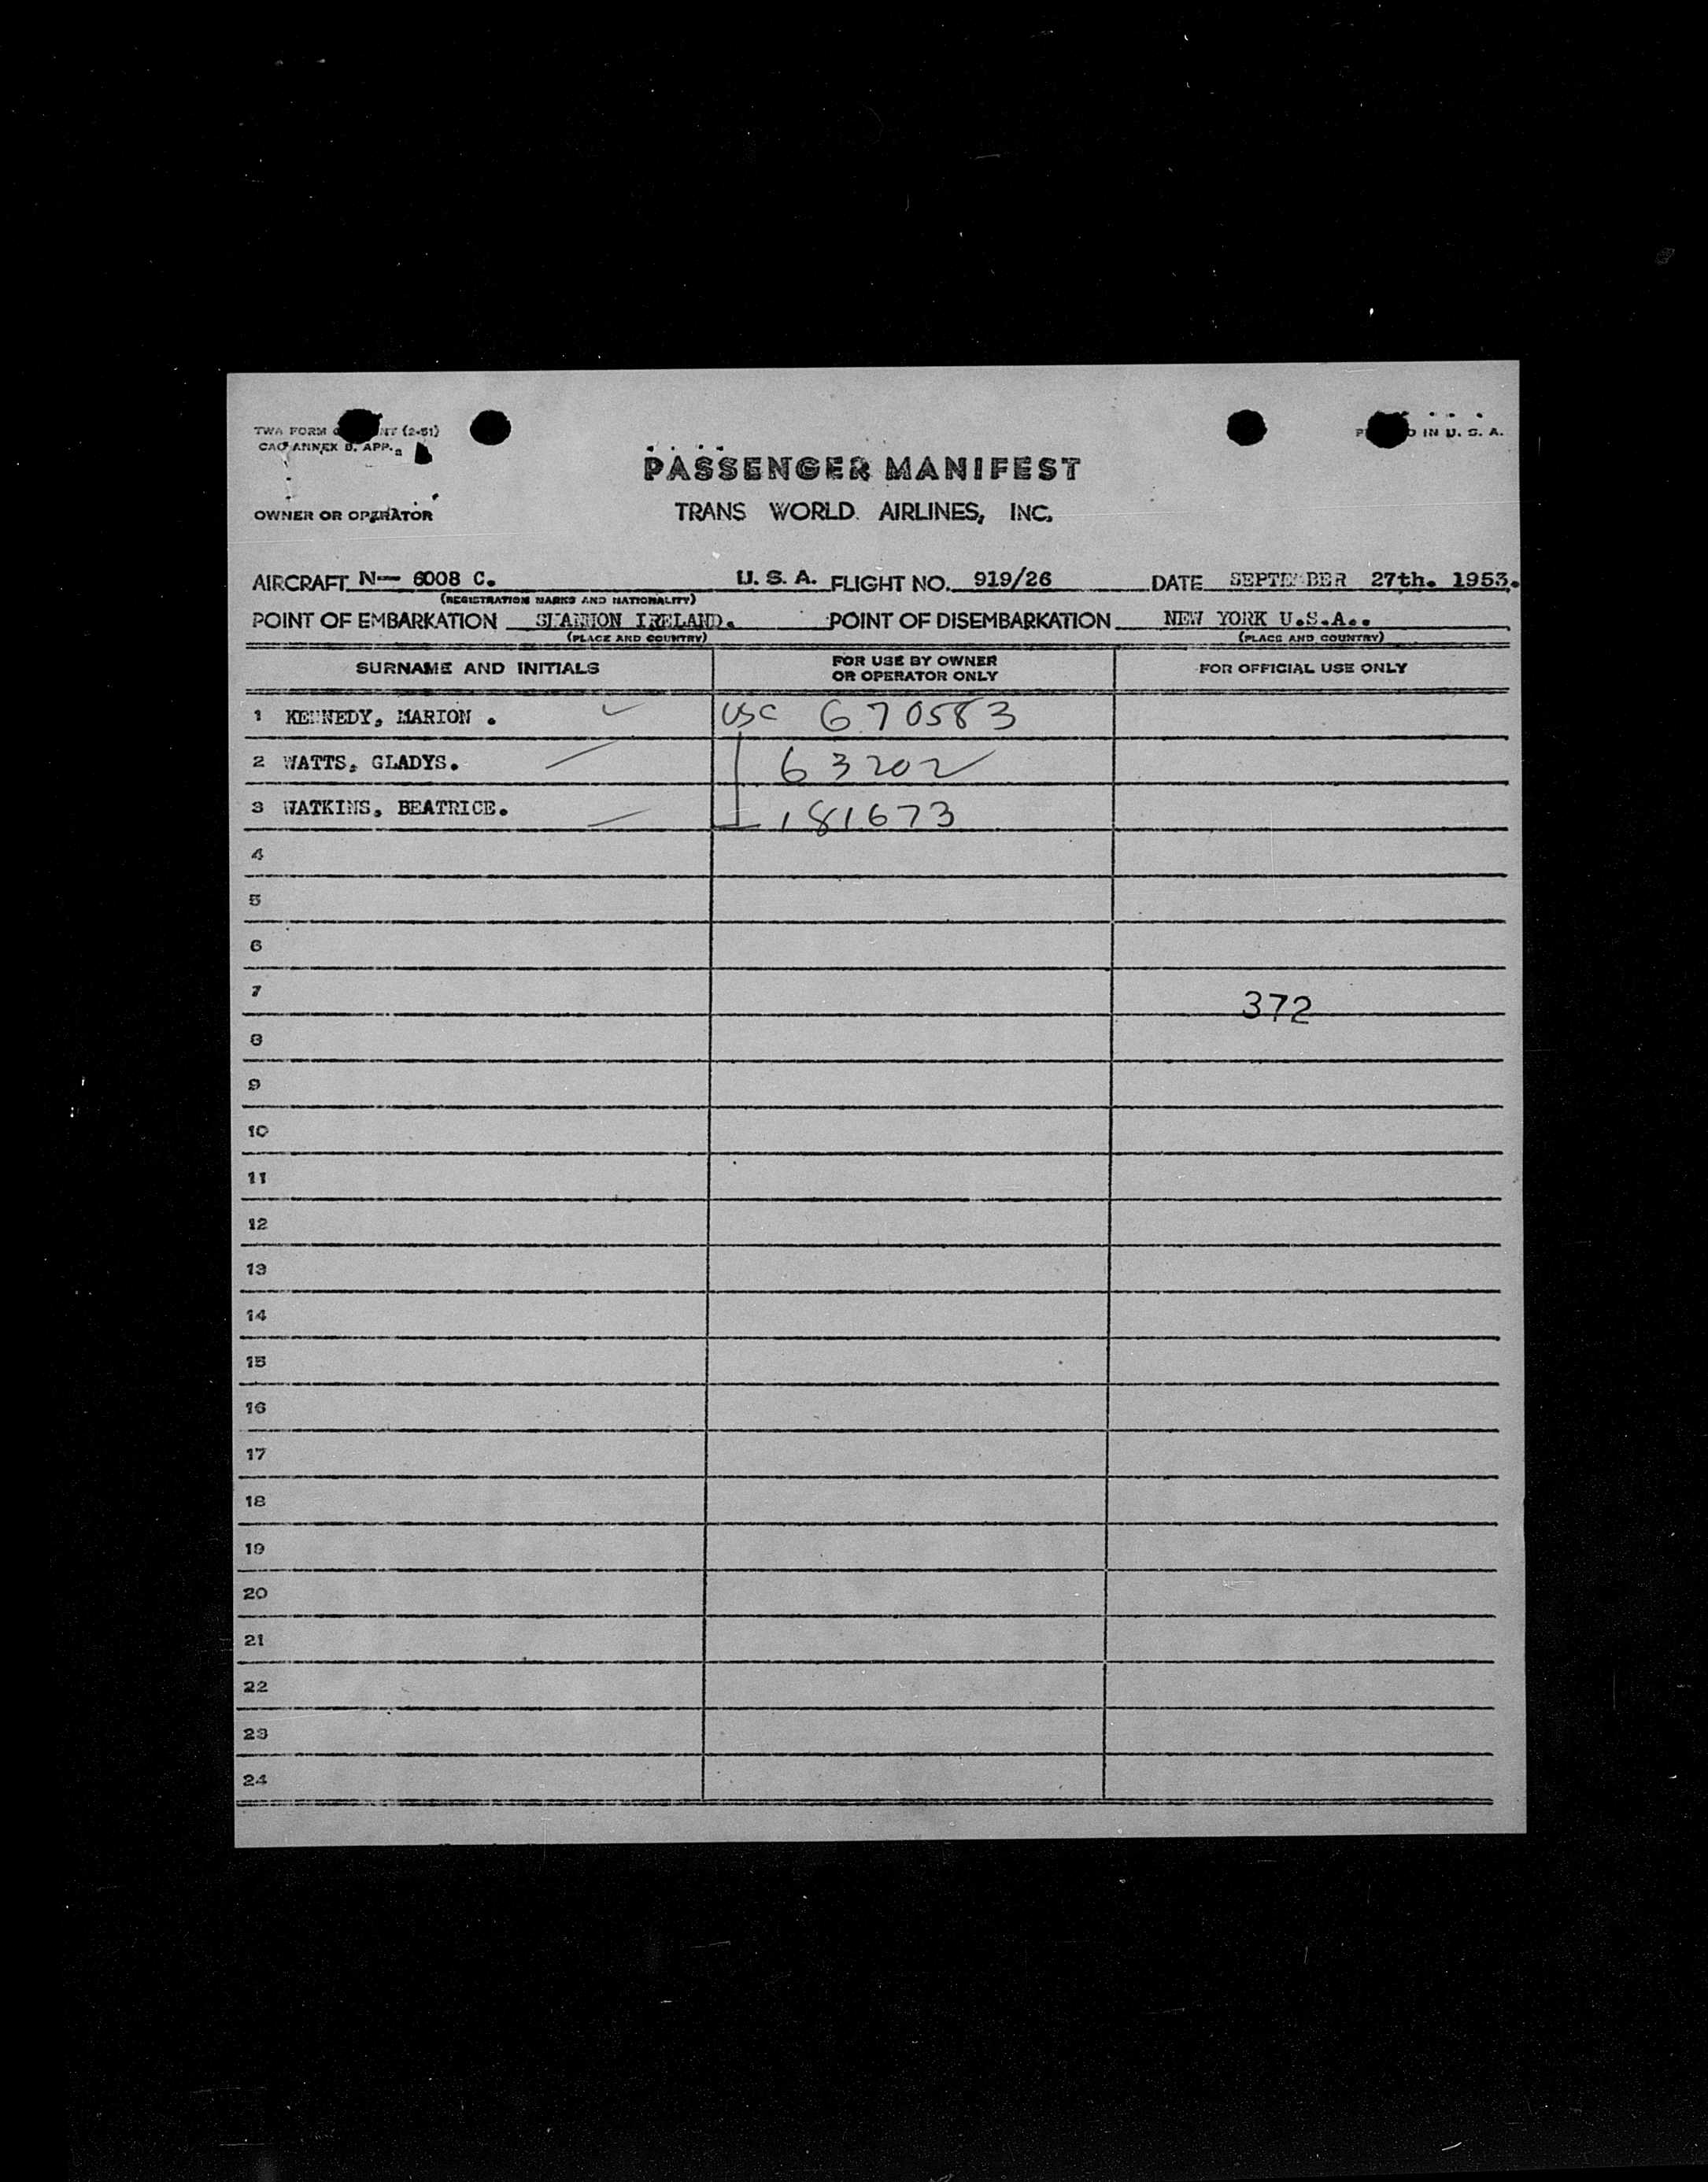 TWA FORM (2-51)
CAO ANNEX 9, APP.
IN U. S. A.
PASSENGER MANIFEST
OWNER OR OPERATOR TRANS WORLD AIRLINES, INC.
AIRCRAFT N— 6008 C. U. S. A. FLIGHT NO. 919/26 DATE SEPTEMBER 27th. 1953.
(REGISTRATION MARKS AND NATIONALITY)
POINT OF EMBARKATION SHANNON IRELAND. POINT OF DISEMBARKATION NEW YORK U.S.A..
(PLACE AND COUNTRY) (PLACE AND COUNTRY)
SURNAME AND INITIALS FOR USE BY OWNER OR OPERATOR ONLY FOR OFFICIAL USE ONLY
1 KENNEDY, MARION . USC 670583
2 WATTS, GLADYS. 63202
3 WATKINS, BEATRICE. 181673
4
5
6
7 372
8
9
10
11
12
13
14
15
16
17
18
19
20
21
22
23
24